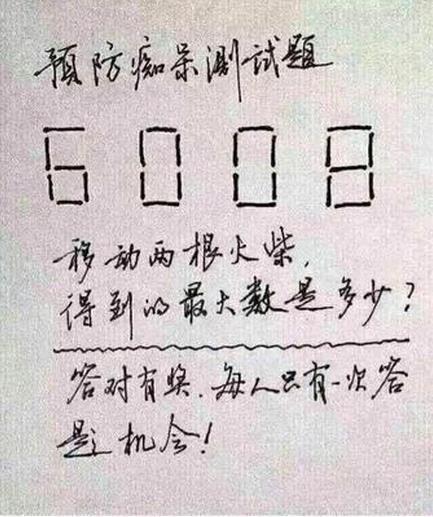 预防痴呆测试题
6008
移动两根火柴，
得到的最大数是多少？
答对有奖．每人只有一次答
题机会！